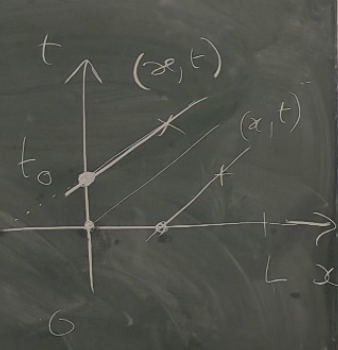 t
(x, t)
(x, t)
t₀
L x
0